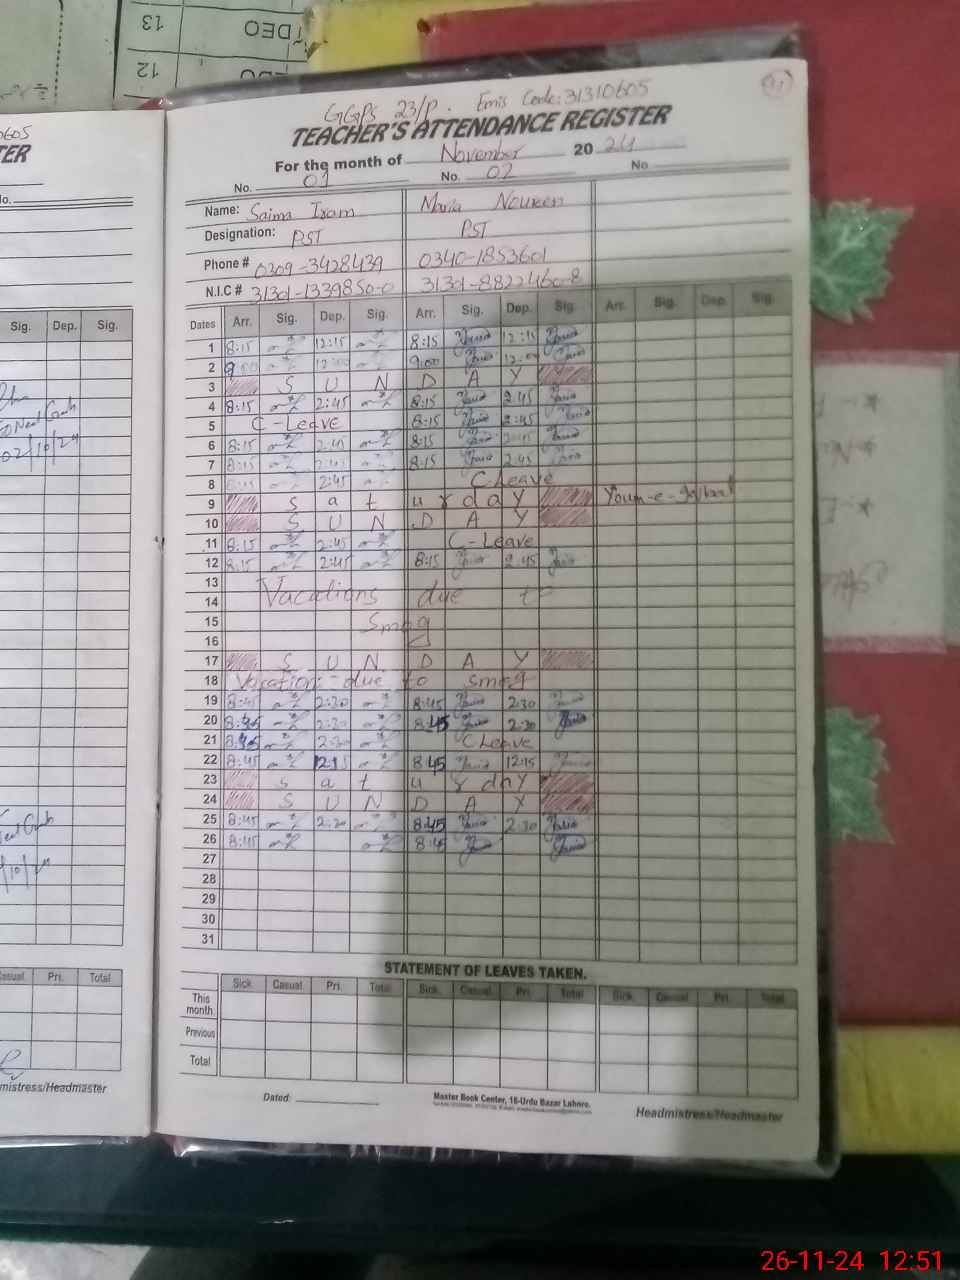 13
DEO
12
GGPS 23/P. Emis Code: 31310605
TEACHER'S ATTENDANCE REGISTER
For the month of November 20 24
No. 01 No. 02 No.
Name: Saima Iram
Designation: PST PST
Phone # 0309-3428439 0340-1853601
N.I.C #
Dates Arr. Sig. Dep. Sig. Arr. Sig. Dep. Sig. Arr. Sig. Dep. Sig.
1 8:15 12:15 8:15 12:15
2 9:00 12:00 9:00 12:00
3 S U N D A Y
4 8:15 2:45 8:15 2:45
5 C-Leave 8:15 2:45
6 8:15 2:45 8:15 2:45
7 8:15 2:45 8:15 2:45
8 8:15 2:45 C Leave
9 S a t u r d a y Youm-e-Iqbal
10 S U N D A Y
11 8:15 2:45 C-Leave
12 8:15 2:45 8:15 2:45
13
14 Vacations due to
15 Smog
16
17 S U N D A Y
18 Vacation due to smog
19 8:45 2:30 8:45 2:30
20 8:45 2:30 8:45 2:30
21 8:45 2:30 C Leave
22 8:45 12:15 8:45 12:15
23 S a t u r d a y
24 S U N D A Y
25 8:45 2:30 8:45 2:30
26 8:45 8:45
27
28
29
30
31
STATEMENT OF LEAVES TAKEN.
Sick. Casual. Pri. Total Sick. Casual. Pri. Total Sick. Casual. Pri. Total
This month.
Previous
Total
Dated:
Master Book Center, 16-Urdu Bazar Lahore.
Headmistress/Headmaster
0605
TER
No.
Sig. Dep. Sig.
02/10/24
Casual. Pri. Total
mistress/Headmaster
26-11-24 12:51